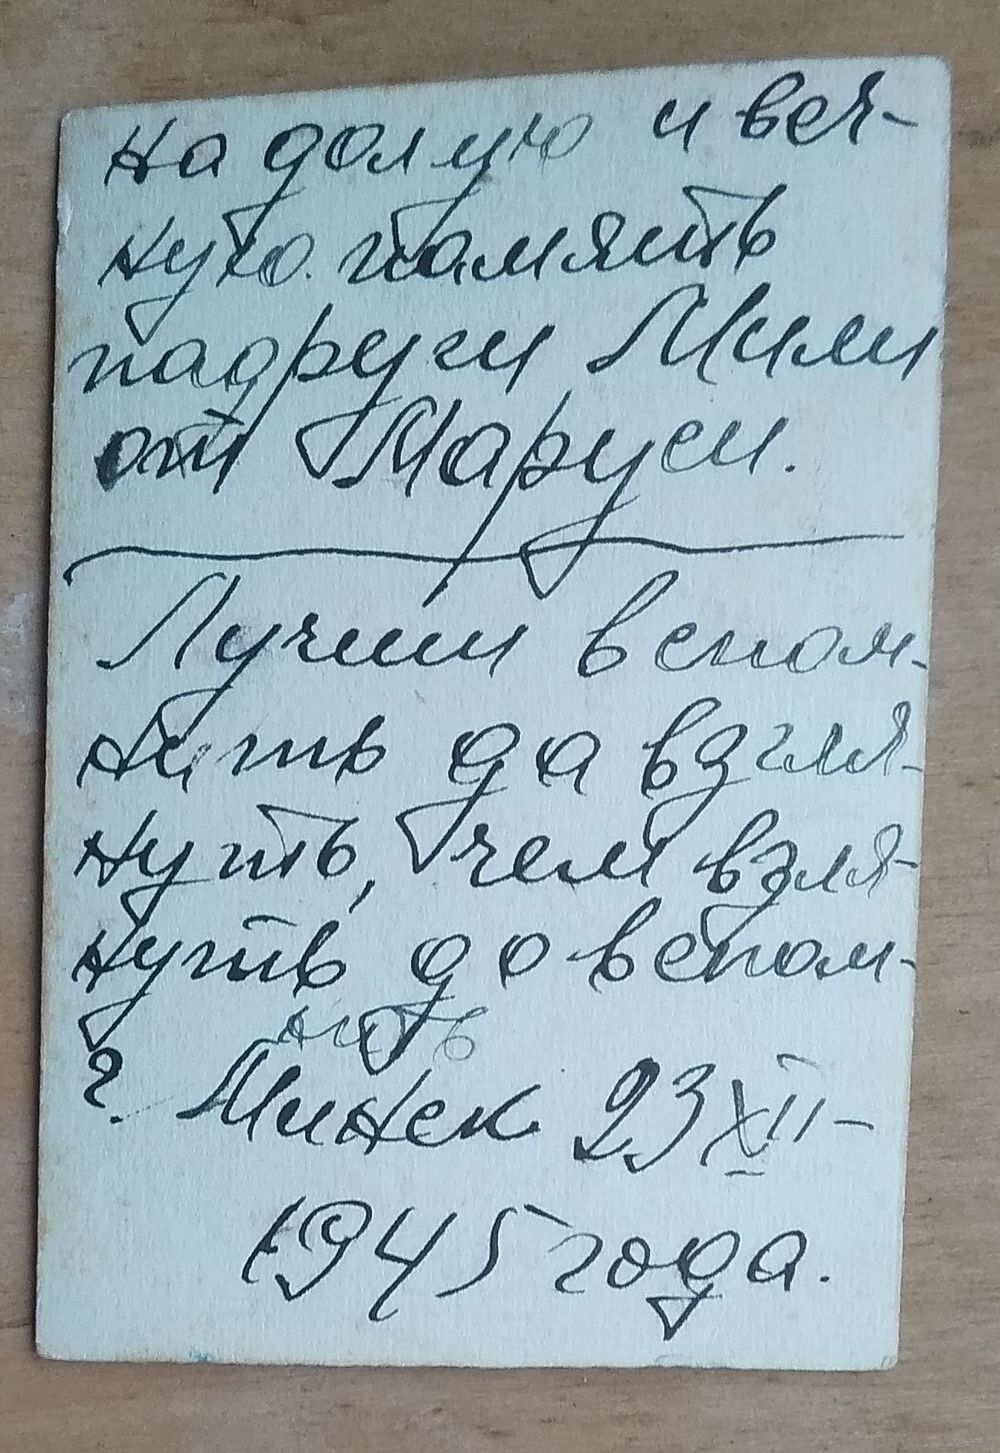 На долгую и веч-
ную память
падруги Мили
от Маруси.
Лучши вспом-
нить да взгля-
нуть, чем взля-
нуть до вспом-
нить
г. Минск 23 XII-
1945 года.